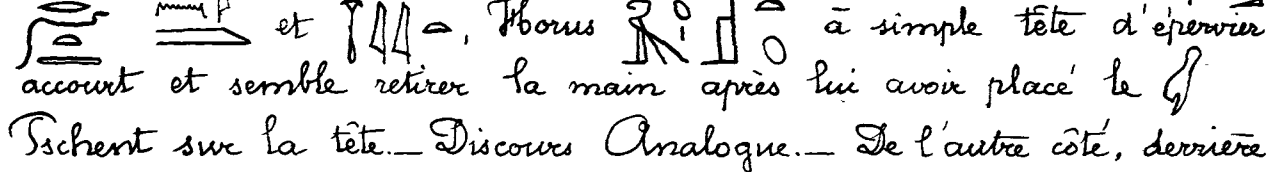 et , Horus à simple tête d'épervier
accourt et semble retirer la main après lui avoir placé le
Pschent sur la tête._ Discours Analogue._ De l'autre côté, derrière